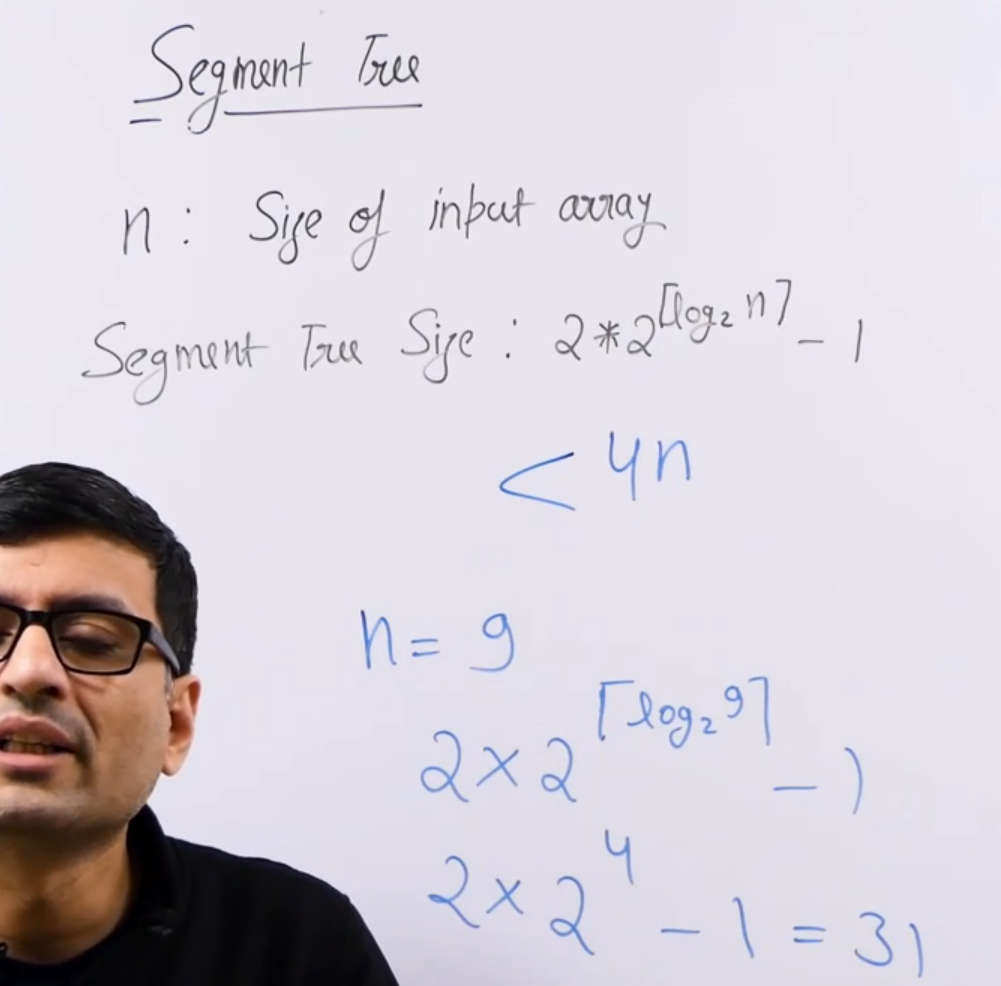 Segment Tree
n : Size of input array
Segment Tree Size : 2*2^⌈log₂ n⌉ - 1
< 4n
n = 9
2×2^⌈log₂ 9⌉ - 1
2×2^4 - 1 = 31